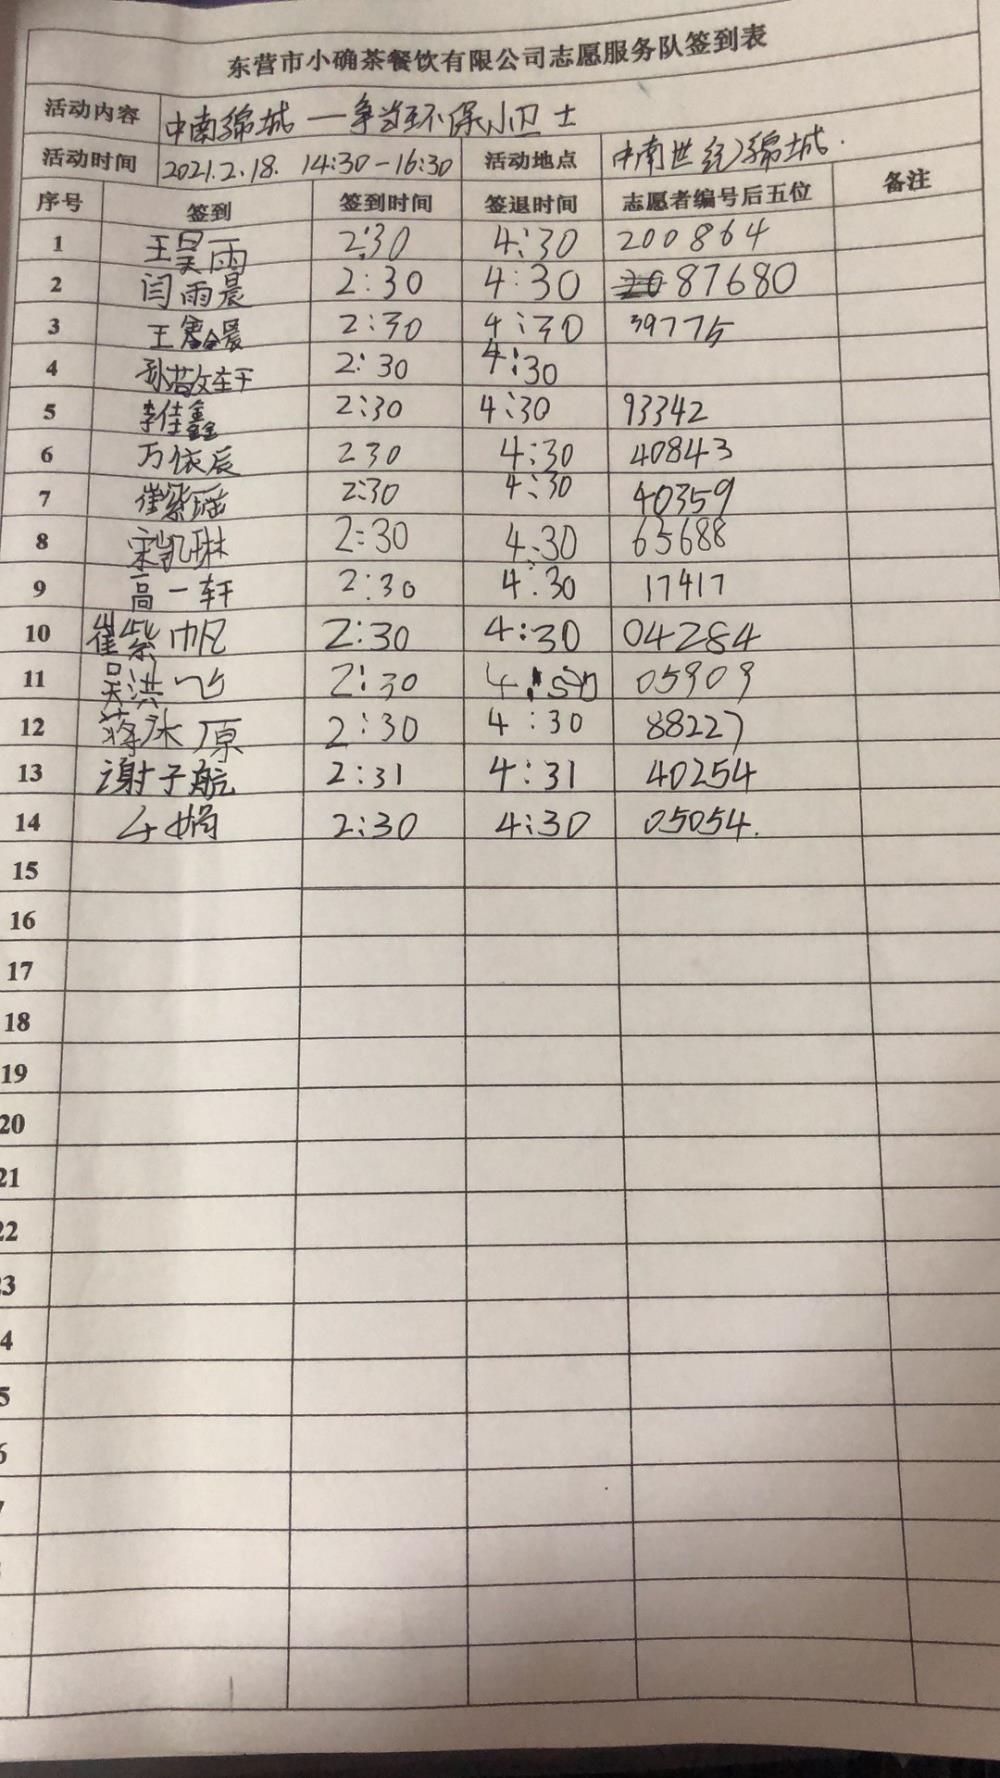 东营市小确茶餐饮有限公司志愿服务队签到表
活动内容 中南锦城 — 争当环保小卫士
活动时间 2021.2.18. 14:30-16:30 活动地点 中南世纪锦城.
序号 签到 签到时间 签退时间 志愿者编号后五位 备注
1 王昊雨 2:30 4:30 200864
2 闫雨晨 2:30 4:30 87680
3 王 晨 2:30 4:30 39775
4 孙 2:30 4:30
5 李佳鑫 2:30 4:30 93342
6 万依辰 230 4:30 40843
7 崔紫瑶 2:30 4:30 40359
8 宋凯琳 2:30 4:30 65688
9 高一轩 2:30 4:30 17417
10 崔紫帆 2:30 4:30 04284
11 吴洪飞 2:30 4: 05909
12 蒋沐原 2:30 4:30 88227
13 谢子航 2:31 4:31 40254
14 2:30 4:30 05054.
15
16
17
18
19
20
21
22
23
4
5
6
7